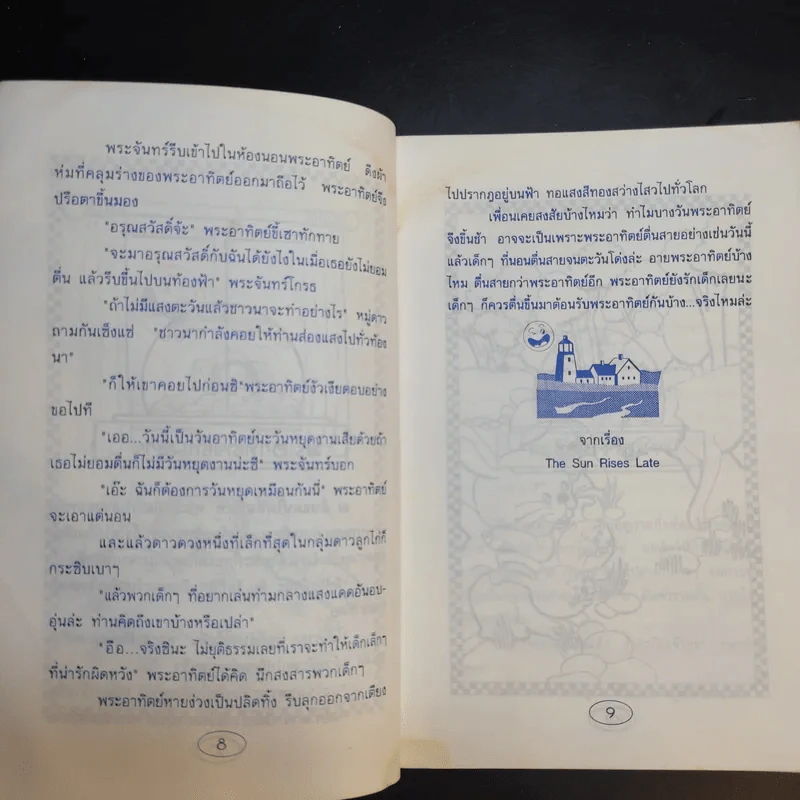 พระจันทร์รีบเข้าไปในห้องนอนพระอาทิตย์ ดึงผ้า
ห่มที่คลุมร่างของพระอาทิตย์ออกมาถือไว้ พระอาทิตย์จึง
ปรือตาขึ้นมอง
"อรุณสวัสดิ์จ้ะ" พระอาทิตย์ขี้เซาทักทาย
"จะมาอรุณสวัสดิ์กับฉันได้ยังไงในเมื่อเธอยังไม่ยอม
ตื่น แล้วรีบขึ้นไปบนท้องฟ้า" พระจันทร์โกรธ
"ถ้าไม่มีแสงตะวันแล้วชาวนาจะทำอย่างไร" หมู่ดาว
ถามกันเซ็งแซ่ "ชาวนากำลังคอยให้ท่านส่องแสงไปทั่วท้อง
นา"
"ก็ให้เขาคอยไปก่อนซิ"พระอาทิตย์งัวเงียตอบอย่าง
ขอไปที
"เออ...วันนี้เป็นวันอาทิตย์นะวันหยุดงานเสียด้วยถ้า
เธอไม่ยอมตื่นก็ไม่มีวันหยุดงานน่ะซี" พระจันทร์บอก
"เอ๊ะ ฉันก็ต้องการวันหยุดเหมือนกันนี่" พระอาทิตย์
จะเอาแต่นอน
และแล้วดาวดวงหนึ่งที่เล็กที่สุดในกลุ่มดาวลูกไก่ก็
กระซิบเบาๆ
"แล้วพวกเด็กๆ ที่อยากเล่นท่ามกลางแสงแดดอันอบ-
อุ่นล่ะ ท่านคิดถึงเขาบ้างหรือเปล่า"
"อือ...จริงซินะ ไม่ยุติธรรมเลยที่เราจะทำให้เด็กเล็กๆ
ที่น่ารักผิดหวัง" พระอาทิตย์ได้คิด นึกสงสารพวกเด็กๆ
พระอาทิตย์หายง่วงเป็นปลิดทิ้ง รีบลุกออกจากเตียง
8
ไปปรากฏอยู่บนฟ้า ทอแสงสีทองสว่างไสวไปทั่วโลก
เพื่อนเคยสงสัยบ้างไหมว่า ทำไมบางวันพระอาทิตย์
จึงขึ้นช้า อาจจะเป็นเพราะพระอาทิตย์ตื่นสายอย่างเช่นวันนี้
แล้วเด็กๆ ที่นอนตื่นสายจนตะวันโด่งล่ะ อายพระอาทิตย์บ้าง
ไหม ตื่นสายกว่าพระอาทิตย์อีก พระอาทิตย์ยังรักเด็กเลยนะ
เด็กๆ ก็ควรตื่นขึ้นมาต้อนรับพระอาทิตย์กันบ้าง...จริงไหมล่ะ
จากเรื่อง
The Sun Rises Late
9